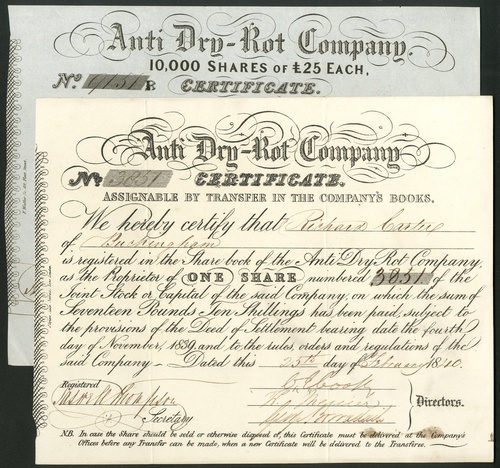 Anti Dry-Rot Company.
10,000 SHARES OF £25 EACH,
No. 9151 R CERTIFICATE.
Anti Dry-Rot Company
No. 3851 CERTIFICATE.
ASSIGNABLE BY TRANSFER IN THE COMPANY'S BOOKS.
We hereby certify that Richard Carter
of Buckingham
is registered in the Share book of the Anti Dry Rot Company,
as the Proprietor of ONE SHARE numbered 3851 of the
Joint Stock or Capital of the said Company, on which the sum of
Seventeen Pounds Ten Shillings has been paid, subject to
the provisions of the Deed of Settlement bearing date the fourth
day of November, 1839, and to the rules, orders and regulations of the
said Company — Dated this 25th day of February 1840.
Registered
Secretary
Directors.
N.B. In case the Share should be sold or otherwise disposed of, this Certificate must be delivered at the Company's
Offices before any Transfer can be made, when a new Certificate will be delivered to the Transferee.